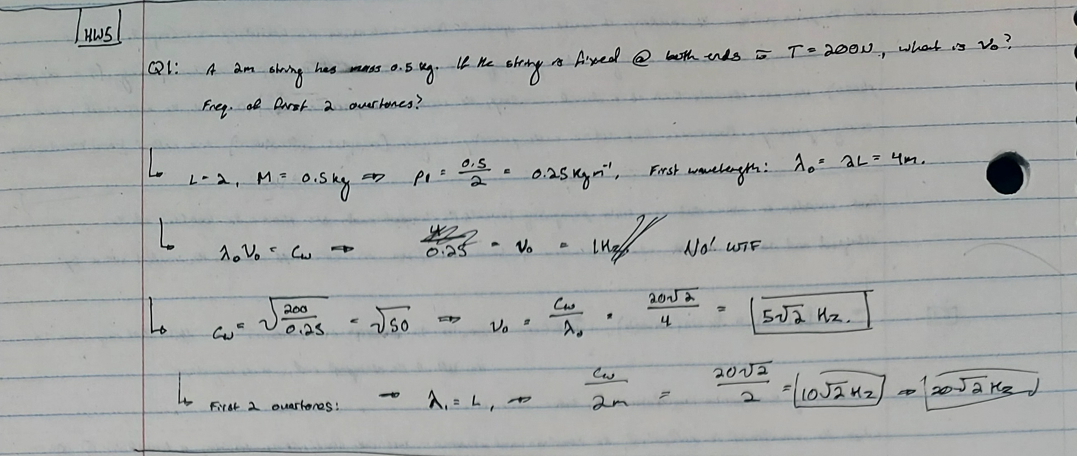 HW5
Q1: A 2m string has mass 0.5 kg. If the string is fixed @ both ends T = 200N, what is ν₀?
Freq. of first 2 overtones?
L = 2, M = 0.5kg ⇒ ρₗ = 0.5/2 = 0.25 kgm⁻¹, First wavelength: λ₀ = 2L = 4m.
λ₀ν₀ = Cω ⇒ /0.25 = ν₀ = 1Hz No! WTF
Cω = √(200/0.25) = √50 ⇒ ν₀ = Cω/λ₀ = 20√2/4 = 5√2 Hz.
First 2 overtones: → λ₁ = L, ⇒ Cω/2m = 20√2/2 = 10√2 Hz ⇒ 20√2 Hz